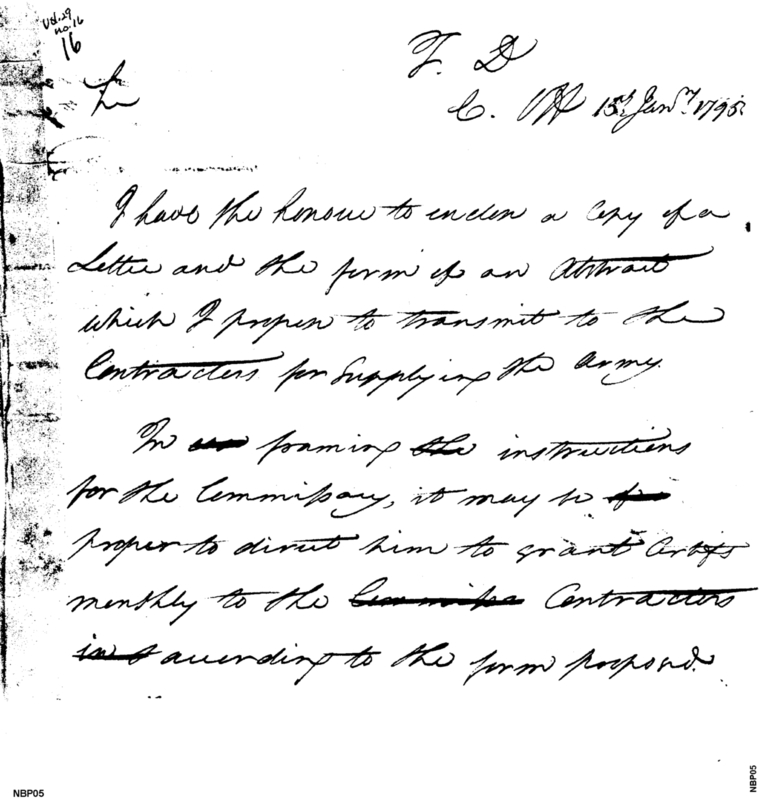 Vol. 29
no. 16
16
T. D
C. Off 15th Janry. 1795.
Sir
I have the honour to enclose a Copy of a
Letter and the form of an Abstract
which I propose to transmit to the
Contractors for Supplying the Army.
In framing the instructions
for the Commissary, it may be
proper to direct him to grant Certifs
monthly to the Contractors
according to the form proposed.
NBP05
NBP05